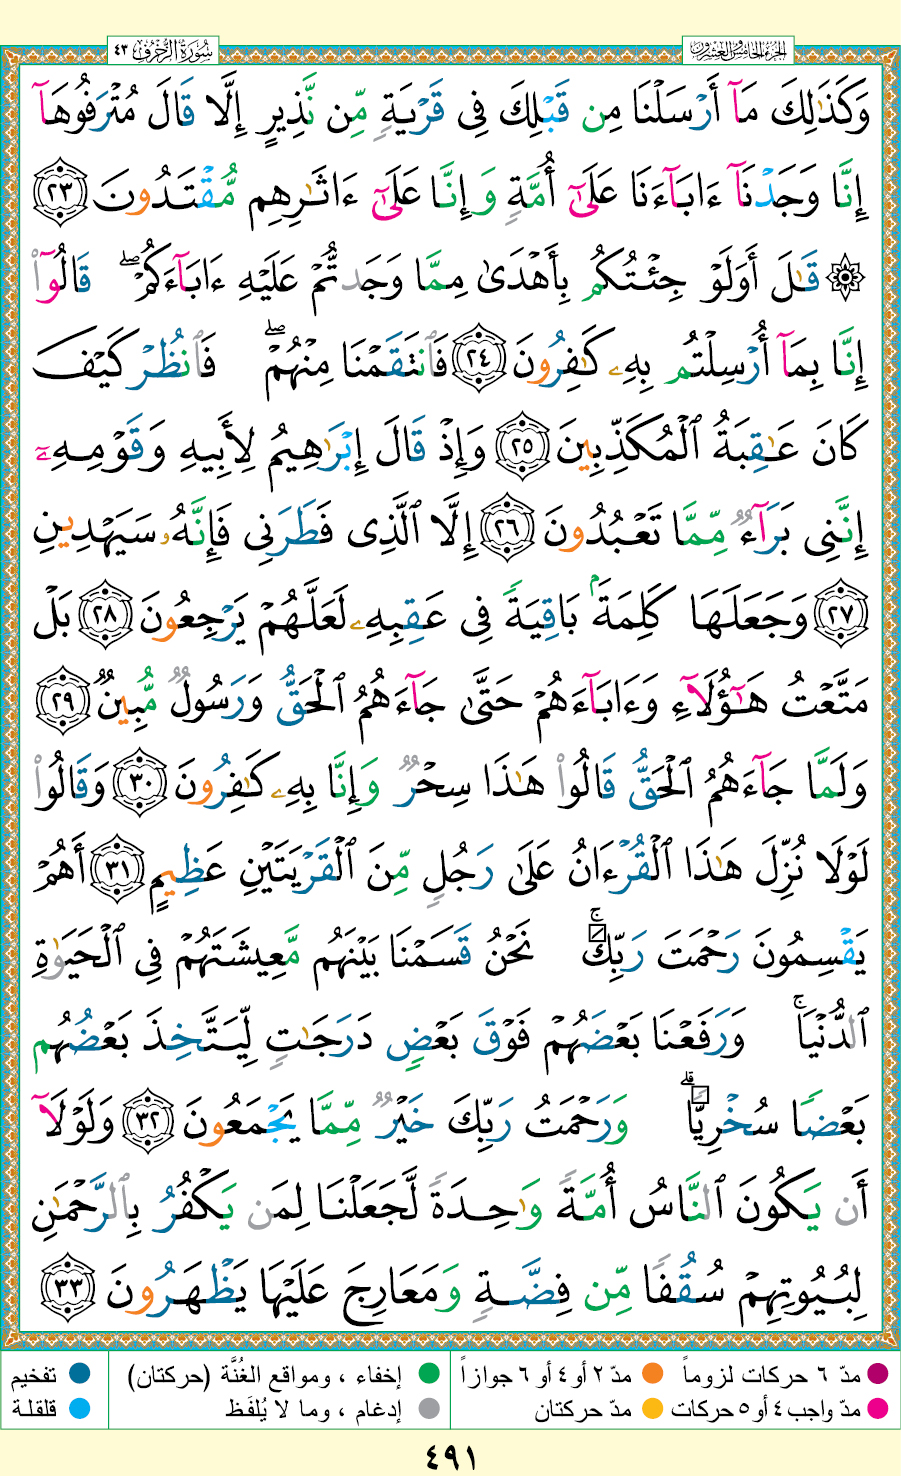 سُورَةُ الزُّخْرُفِ ٤٣
الجُزءُ الخَامِسُ وَالعِشْرُونَ
وَكَذَٰلِكَ مَآ أَرْسَلْنَا مِن قَبْلِكَ فِى قَرْيَةٍ مِّن نَّذِيرٍ إِلَّا قَالَ مُتْرَفُوهَآ
إِنَّا وَجَدْنَآ ءَابَآءَنَا عَلَىٰٓ أُمَّةٍ وَإِنَّا عَلَىٰٓ ءَاثَـٰرِهِم مُّقْتَدُونَ ٢٣
۞ قَـٰلَ أَوَلَوْ جِئْتُكُم بِأَهْدَىٰ مِمَّا وَجَدتُّمْ عَلَيْهِ ءَابَآءَكُمْ ۖ قَالُوٓا۟
إِنَّا بِمَآ أُرْسِلْتُم بِهِۦ كَـٰفِرُونَ ٢٤ فَٱنتَقَمْنَا مِنْهُمْ ۖ فَٱنظُرْ كَيْفَ
كَانَ عَـٰقِبَةُ ٱلْمُكَذِّبِينَ ٢٥ وَإِذْ قَالَ إِبْرَٰهِيمُ لِأَبِيهِ وَقَوْمِهِۦٓ
إِنَّنِى بَرَآءٌ مِّمَّا تَعْبُدُونَ ٢٦ إِلَّا ٱلَّذِى فَطَرَنِى فَإِنَّهُۥ سَيَهْدِينِ
٢٧ وَجَعَلَهَا كَلِمَةًۢ بَاقِيَةً فِى عَقِبِهِۦ لَعَلَّهُمْ يَرْجِعُونَ ٢٨ بَلْ
مَتَّعْتُ هَـٰٓؤُلَآءِ وَءَابَآءَهُمْ حَتَّىٰ جَآءَهُمُ ٱلْحَقُّ وَرَسُولٌ مُّبِينٌ ٢٩
وَلَمَّا جَآءَهُمُ ٱلْحَقُّ قَالُوا۟ هَـٰذَا سِحْرٌ وَإِنَّا بِهِۦ كَـٰفِرُونَ ٣٠ وَقَالُوا۟
لَوْلَا نُزِّلَ هَـٰذَا ٱلْقُرْءَانُ عَلَىٰ رَجُلٍ مِّنَ ٱلْقَرْيَتَيْنِ عَظِيمٍ ٣١ أَهُمْ
يَقْسِمُونَ رَحْمَتَ رَبِّكَ ۚ نَحْنُ قَسَمْنَا بَيْنَهُم مَّعِيشَتَهُمْ فِى ٱلْحَيَوٰةِ
ٱلدُّنْيَا ۚ وَرَفَعْنَا بَعْضَهُمْ فَوْقَ بَعْضٍ دَرَجَـٰتٍ لِّيَتَّخِذَ بَعْضُهُم
بَعْضًا سُخْرِيًّا ۗ وَرَحْمَتُ رَبِّكَ خَيْرٌ مِّمَّا يَجْمَعُونَ ٣٢ وَلَوْلَآ
أَن يَكُونَ ٱلنَّاسُ أُمَّةً وَٰحِدَةً لَّجَعَلْنَا لِمَن يَكْفُرُ بِٱلرَّحْمَـٰنِ
لِبُيُوتِهِمْ سُقُفًا مِّن فِضَّةٍ وَمَعَارِجَ عَلَيْهَا يَظْهَرُونَ ٣٣
مدّ ٦ حركات لزوماً مدّ ٢ أو ٤ أو ٦ جوازاً إخفاء ، ومواقع الغُنَّة (حركتان) تفخيم
مدّ واجب ٤ أو ٥ حركات مدّ حركتان إدغام ، وما لا يُلفَظ قلقلة
٤٩١